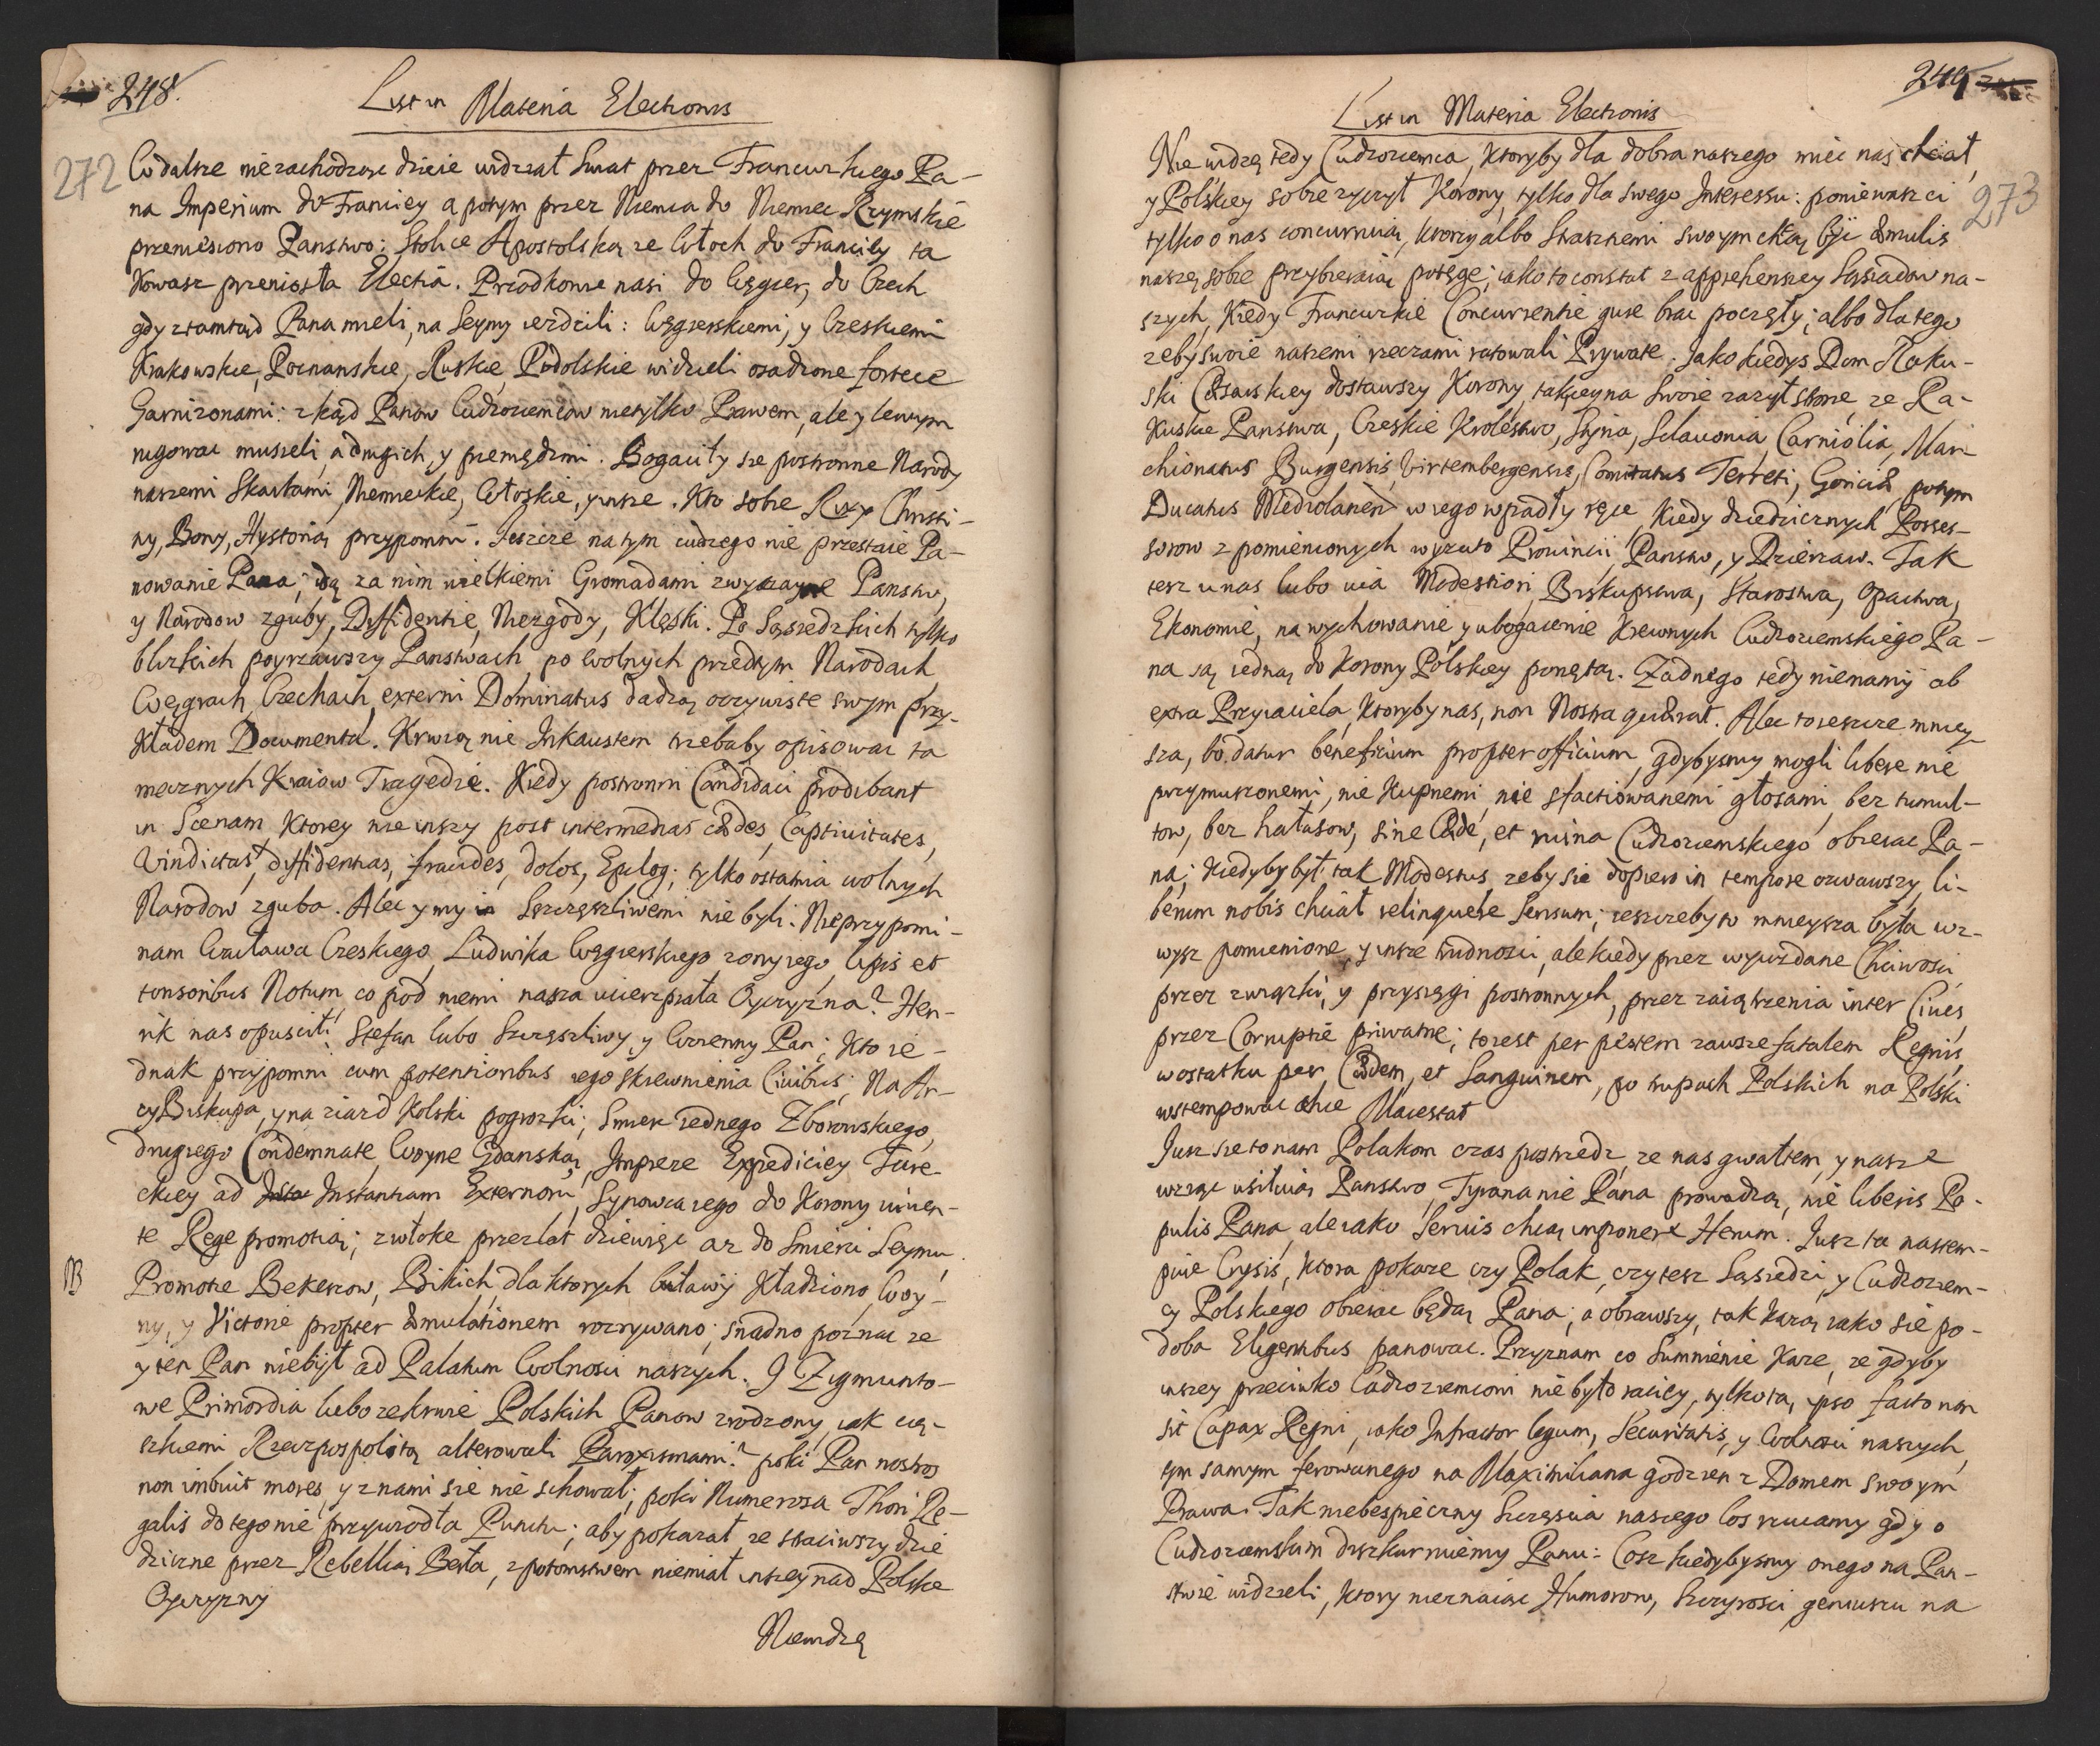 248.
272
List in Materia Electionis
Co dalsze nie zachodząc dzieie widział Swiat przez Francuzkiego Pa-
na Imperium do Franciey a potym przez Niemca do Niemiec Rzymskie
przeniesiono Panstwo: Stolice Apostolską ze Włoch do Franciey ta
kowasz przeniosła Electia. Przodkowie nasi do Węgier, do Czech
gdy ztamtąd Pana mieli, na Seymy iezdzili: Węgierskiemi, y Czeskiemi
Krakowskie, Poznanskie, Ruskie, Podolskie widzieli osadzone fortece
Garnizonami: zkąd Panow Cudzoziemcow nietylko Prawem, ale y lewym
rugowac musieli, a drugich, y pieniędzmi. Bogaciły sie postronne Narody
naszemi Skarbami, Niemieckie, Włoskie, y insze. Kto sobie Rixy Christi-
ny, Bony, Hystorią przypomni. Jeszcze na tym cudzego nie przestaie Pa-
nowanie Pana; idą za nim wielkiemi Gromadami zwyczayne Panstw,
y Narodow zguby, Diffidentie, Niezgody, Klęski. Po Sąsiedzkich tylko
blizkich poyrzawszy Panstwach po wolnych przedtym Narodach
Węgrach, Czechach, externi Dominatus dadzą oczywiste swym przy-
kładem Documenta. Krwią nie Inkaustem trzebaby opisowac ta
mecznych Kraiow Tragedie. Kiedy postronni Candidaci prodibant
in Scenam ktorey nie inszy post intermedias cædes, Captivitates,
Vindictas, diffidentias, fraudes, dolos, Epilog; tylko ostatnia wolnych
Narodow zguba. Alec y my in Szczęszliwiemi nie byli. Nieprzypomi-
nam Wacława Czeskiego, Ludwika Węgierskiego zony iego, lipis et
tonsoribus Notum, co pod niemi nasza ucierpiała Oyczyzna? Hen-
rik nas opuscił! Stefan lubo Szczęszliwy, y Woienny Pan; Kto ie-
dnak przypomni cum potentioribus iego skrewnienia Civibus; Na Ar-
cyBiskupa, y na ziazd Kolski pogrozki; Smierc iednego Zborowskiego,
drugiego Condemnate, Woyne Gdanską, Impreze Expediciey Ture-
ckiey ad Instantiam Externoru, Synowca iego do Korony viven-
te Rege promotią; zwłoke przez lat dziewięc az do Smierci Seymu.
NB
Promotie Bekieszow, Bikich, dla ktorych buławy kładziono, Woy-
ny, y Victorie propter æmulationem rozrywano; snadno poznac ze
y ten Pan niebył ad Palatum Wolnosci naszych. I Zigmunto-
we Primordia lubo zekrwie Polskich Panow zrodzony, iak cię-
szkiemi Rzeczpospolitą alterowali Paroxismami? poki Pan nostros
non imbuit mores, y z nami sie nie schował; poki Numerosa Thori Re-
galis do tego nie przywiodła Punctu; aby pokazał ze straciwszy dzie
dziczne przez Rebellią Berła, z potomstwem niemiał inszey nad Polske
Oyczyzny
Niewidzę
249
273
List in Materia Electionis
Nie widzę tedy Cudzoziemca, ktoryby dla dobra naszego miec nas chciał,
y Polskiey sobie zyczył Korony, tylko dla swego Interessu: poniewasz ci
tylko o nas concurruią, ktorzy albo Strasznemi swoym chcą byc æmulis
naszę sobie przybieraiąc potęge; iako to constat z apprehensiey Sąsiadow na-
szych, Kiedy Francuzkie Concurrentie gure brac poczęły; albo dla tego
zeby swoie naszemi rzeczami ratowali Prywate. Jako kiedys Dom Raku-
ski Cæsarskiey dostawszy Korony, takiey na swoie zazył strone, ze Ra-
kuskie Panstwa, Czeskie Krolestwo, Styria, Sclavonia, Carniolia, Mar-
chionatus Burgensis, Virtembergensis, Comitatus Terreti, Goriciæ, potym
Ducatus Mediolanens w iego wpadły ręce, kiedy dziedzicznych Posses-
sorow z pomienionych wyzuto Provincii, Panstw, y Dzierzaw. Tak
tesz u nas lubo via Modestiori, Biskupstwa, Starostwa, Opactwa,
Ekonomie, na wychowanie y ubogacenie krewnych Cudzoziemskiego Pa-
na są iedną do Korony Polskiey ponętą. Zadnego tedy niemamy ab
extra Przyiaciela, ktoryby nas, non Nostra quærat. Alec to ieszcze mniey
sza, bo datur beneficium propter officium, gdybysmy mogli libere nie
przymuszonemi, nie kupnemi, nie sfactiowanemi głosami, bez tumul-
tow, bez hałasow, sine Cæde, et ruina Cudzoziemskiego obierac Pa-
na; kiedyby był tak Modestus, zeby sie dopiero in tempore ozwawszy, li-
berum nobis chciał relinquere Sensum; ieszczeby to mnieysza była wz-
wysz pomienione, y insze trudnosci, ale kiedy przez wyuzdane Chciwosci
przez zwiąski, y przysięgi postronnych, przez zaiątrzenia inter Cives,
przez Corruptie priwatne; to iest per pestem zawsze fatalem Regnis,
w ostatku per Cædem, et Sanguinem, po trupach Polskich na Polski
wstempowac chce Maiestat
Jusz sie to nam Polakom czas postrzedz, ze nas gwałtem, y nasze
wziąc usiłuią Panstwo, Tyrana nie Pana prowadzą, nie liberis Po-
pulis Pana, ale iako Servis chcą imponere Herum. Jusz ta nastem-
puie Crysis, ktora pokaze czy Polak, czy tesz Sąsiedzi, y Cudzoziem-
cy Polskiego obierac będą Pana; a obrawszy, tak każą iako sie po-
doba Eligentibus panowac. Przyznam co Sumnienie kaze, ze gdyby
inszey przeciwko Cudzoziemcowi nie było raciey, tylko ta, ipso facto non
sit Capax Regni, iako Infractor legum, Securitatis, y Wolnosci naszych,
tym samym ferowanego na Maximiliana godzien z Domem swoym
Prawa. Tak niebespieczny Szczęscia naszego los rzucamy gdy o
Cudzoziemskim dyszkurruiemy Panu: Cosz kiedybysmy onego na Pan-
stwie widzieli, ktory nieznaiąc Humorow, Szczyrosci geniuszu na